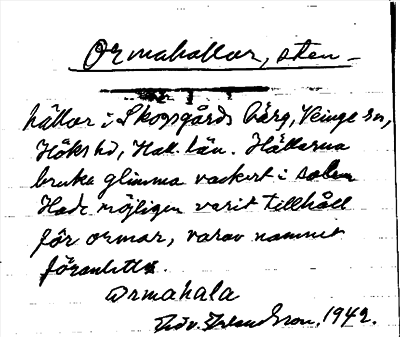 Ormahallar, sten-
hällar i Skogsgårds bärg, Veinge sn,
Höks hd, Hall. län. Hällarna
bruka glimma vackert i solen
Hade möjligen varit tillhåll
för ormar, varav namnet
föranlett.
Ormahala
1942.